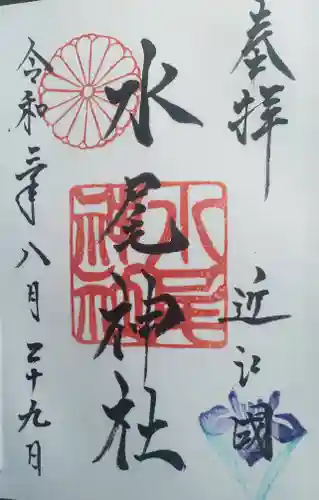 奉拝
近江國
水尾神社
水尾神社
令和三年八月二十九日